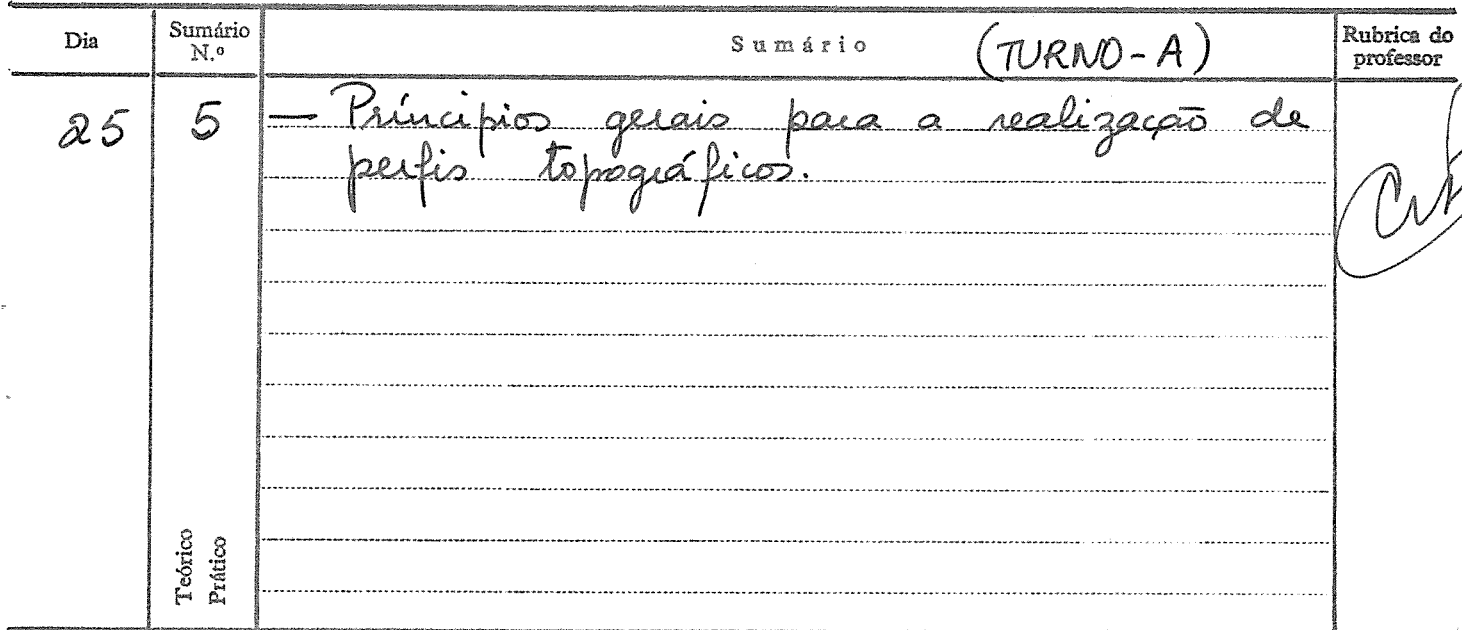 Dia
Sumário N.º
Sumário (TURNO-A)
Rubrica do professor
25 5 — Príncipios gerais para a realização de
perfis topográficos.
Teórico
Prático